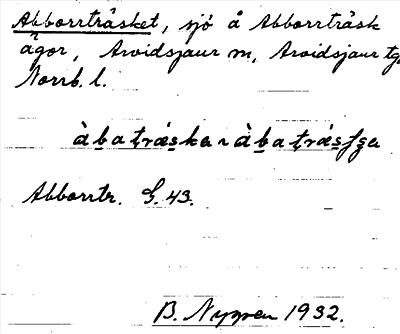 Abborrträsket, sjö å Abborrträsk
ägor, Arvidsjaur sn, Arvidsjaur tg.
Norrb. l.
àbatrǽska ~ àbatrǽsʃʒa
Abborrtr. G. 43.
B. Nygren 1932.